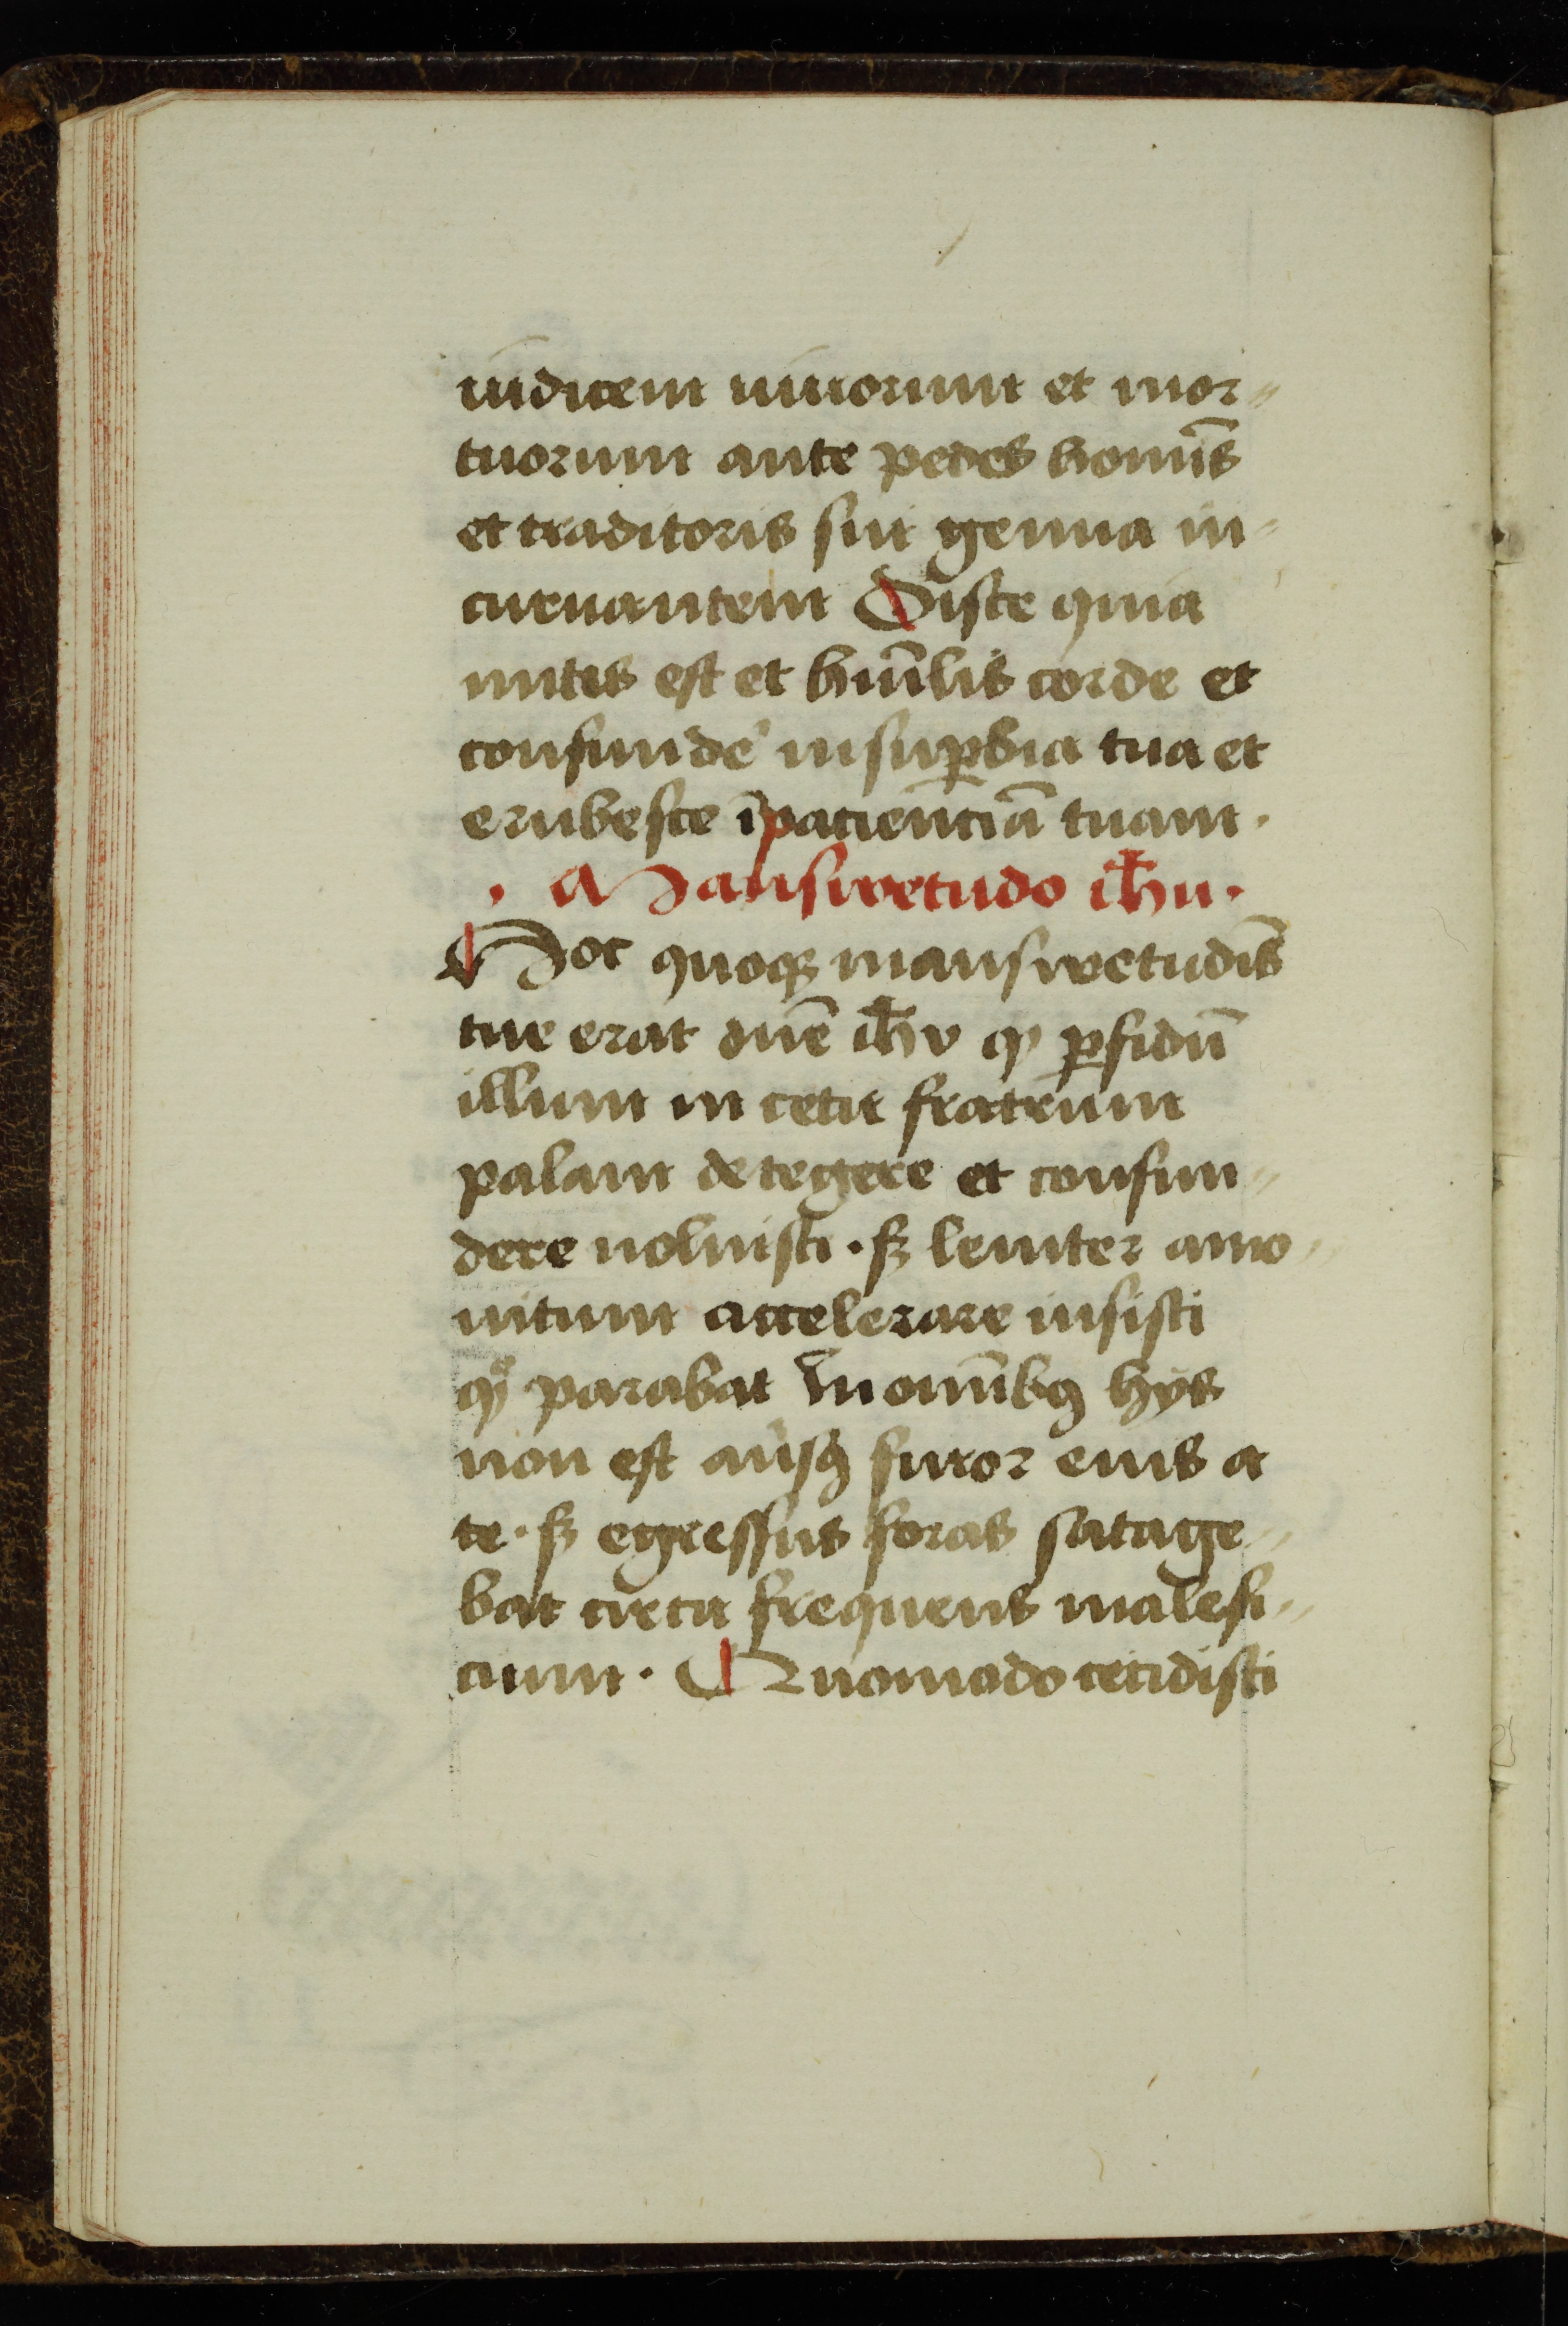 iudicem uiuorum et mor⸗
tuorum ante pedes homīs
et traditoris sui genua in⸗
curuantem Disce quia
mitis est et hūilis corde et
confunde' in suꝑbia tua et
erubesce īpacienciā tuam ·
· Manswetudo ih̄u ·
Hoc quoqꝫ manswetudīs
tue erat dn̄e ih̄v ꝙ ꝑfidū
illum in cetu fratrum
palam detegere et confun⸗
dere noluisti · sꝫ leniter amo⸗
nitum accelerare iussisti
qͦd parabat In om̄ibꝫ hijs
non est auersꝰ furor eius a
te · sꝫ egressus foras satage⸗
bat circa frequens malefi⸗
cium · Quomodo cecidisti